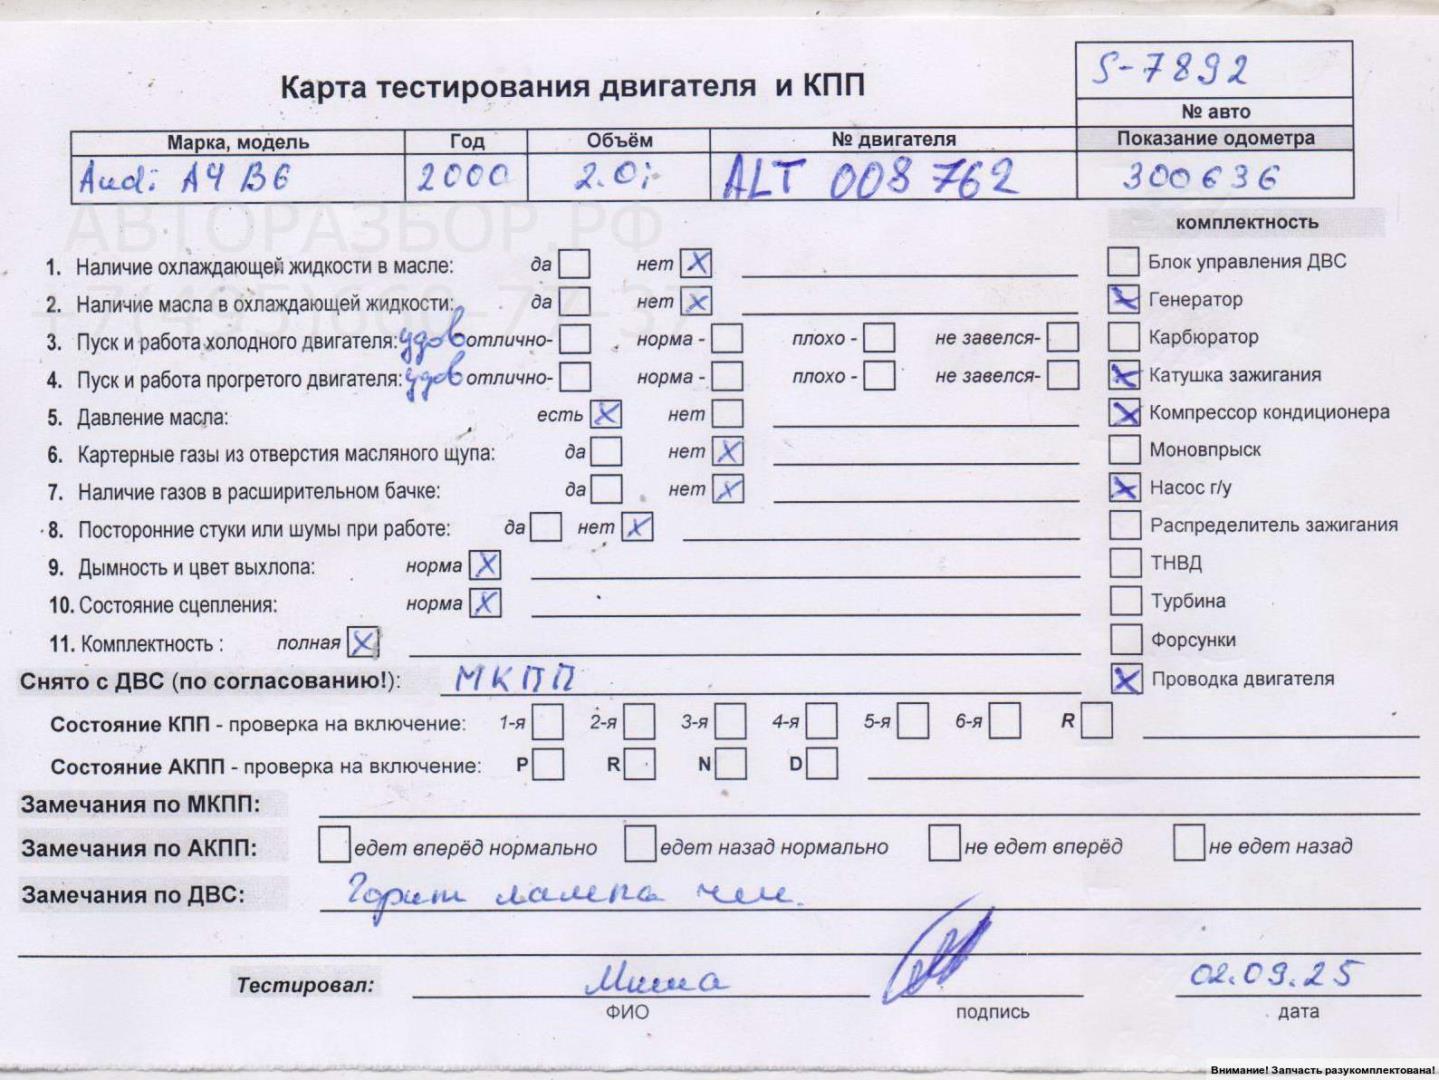 S-7892
Карта тестирования двигателя и КПП
№ авто
Марка, модель Год Объём № двигателя Показание одометра
Audi A4 B6 2000 2.0i ALT 008 762 300636
АВТОРАЗБОР.РФ
комплектность
1. Наличие охлаждающей жидкости в масле: да нет X Блок управления ДВС
+7(495)668-77-37
2. Наличие масла в охлаждающей жидкости: да нет X X Генератор
3. Пуск и работа холодного двигателя: удов отлично- норма - плохо - не завелся- Карбюратор
4. Пуск и работа прогретого двигателя: удов отлично- норма - плохо - не завелся- X Катушка зажигания
5. Давление масла: есть X нет X Компрессор кондиционера
6. Картерные газы из отверстия масляного щупа: да нет X Моновпрыск
7. Наличие газов в расширительном бачке: да нет X X Насос г/у
8. Посторонние стуки или шумы при работе: да нет X Распределитель зажигания
9. Дымность и цвет выхлопа: норма X ТНВД
10. Состояние сцепления: норма X Турбина
11. Комплектность : полная X Форсунки
Снято с ДВС (по согласованию!): МКПП X Проводка двигателя
Состояние КПП - проверка на включение: 1-я 2-я 3-я 4-я 5-я 6-я R
Состояние АКПП - проверка на включение: P R N D
Замечания по МКПП:
Замечания по АКПП: едет вперёд нормально едет назад нормально не едет вперёд не едет назад
Замечания по ДВС: Горит лампа чек.
Тестировал: Миша 02.09.25
ФИО подпись дата
Внимание! Запчасть разукомплектована!